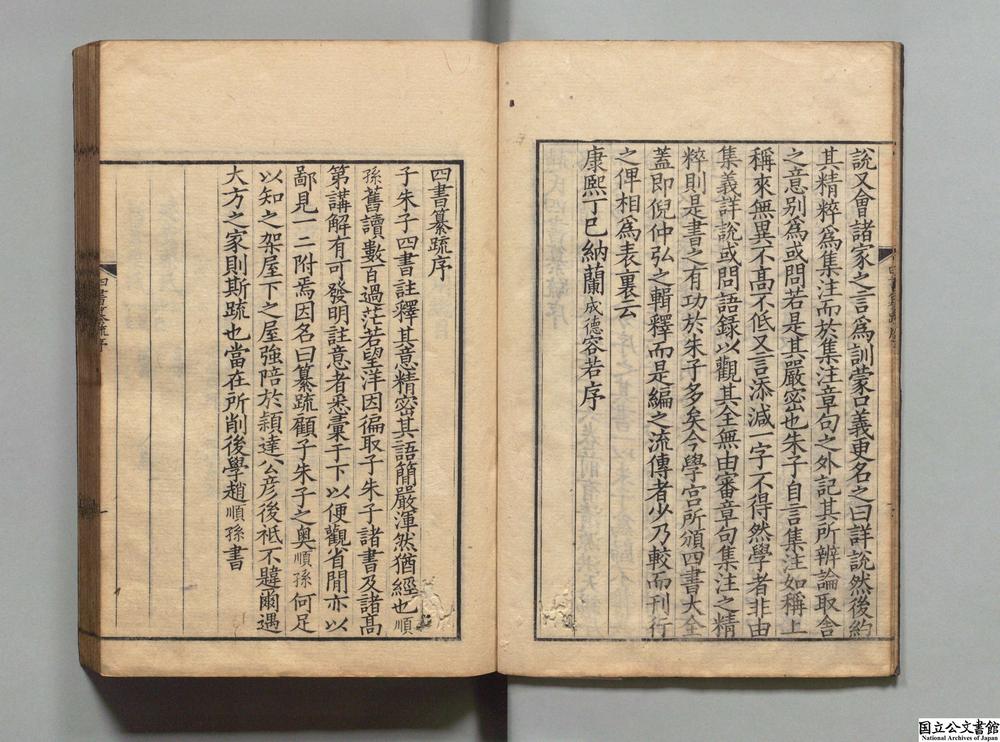 說又會諸家之言為訓蒙口義更名之曰詳說然後約
其精粹為集注而於集注章句之外記其所辨論取舍
之意别為或問若是其嚴密也朱子自言集注如稱上
稱來無異不高不低又言添減一字不得然學者非由
集義詳說或問語録以觀其全無由審章句集注之精
粹則是書之有功於朱子多矣今學宫所頒四書大全
蓋即倪仲弘之輯釋而是編之流傳者少乃較而刊行
之俾相為表裏云
康熙丁巳納蘭成德容若序
四書纂疏序
子朱子四書註釋其意精密其語簡嚴渾然猶經也順
孫舊讀數百過茫若望洋因徧取子朱子諸書及諸髙
第講解有可發明註意者悉彚于下以便觀省閒亦以
鄙見一二附焉因名曰纂疏顧子朱子之奥順孫何足
以知之架屋下之屋強陪於穎達公彦後祗不韙爾遇
大方之家則斯疏也當在所削後學趙順孫書
四書纂疏序
国立公文書館
National Archives of Japan